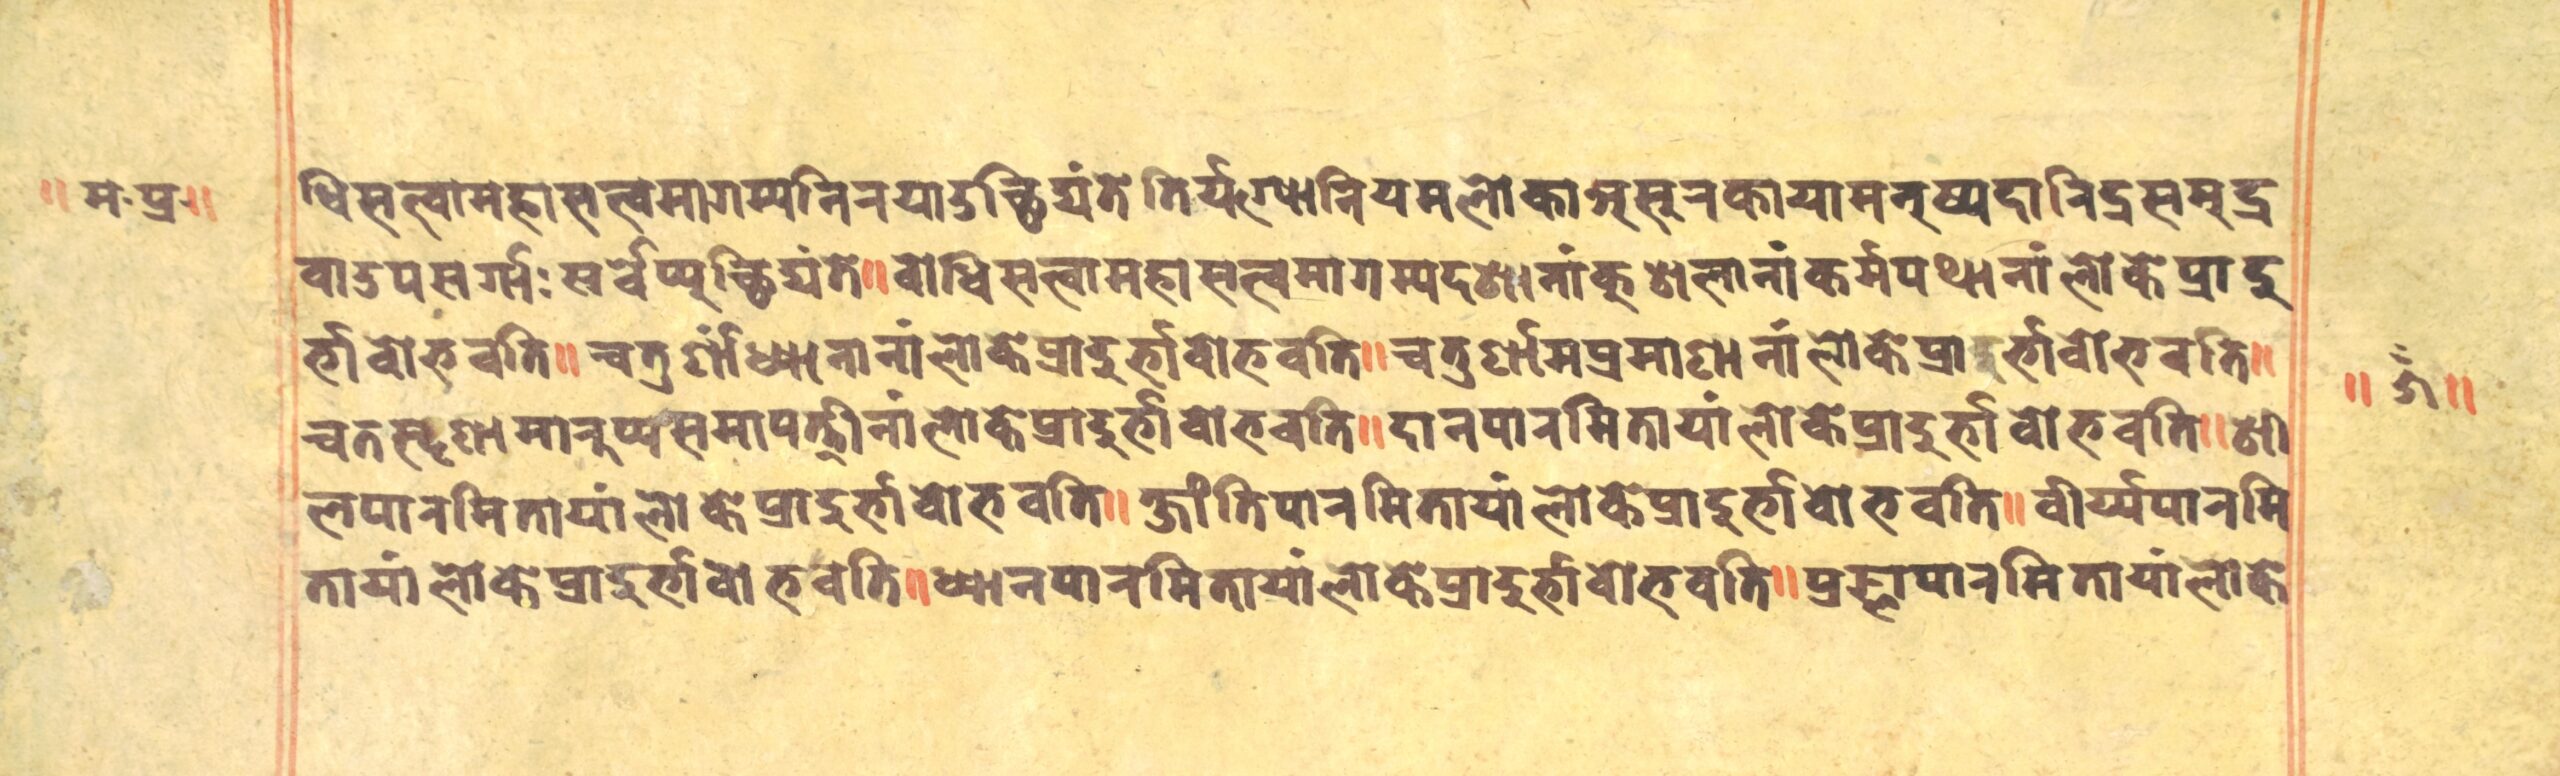 ॥ म·प्र·॥
धिसत्त्वामहासत्त्वमागम्यनिरयाउच्छिद्यंते तिर्यग्योनियमलोकाअसुरकायामनुष्यदारिद्रसमुद्र
वाउपसर्गाः सर्व्वेप्युच्छिद्यंते॥ बोधिसत्त्वामहासत्त्वमागम्यदशानांकुशलानांकर्मपथानांलोकेप्रादु
र्भावोभवति॥ चतुर्णांध्यानानांलोकेप्रादुर्भावोभवति॥ चतुर्णामप्रमाणानांलोकेप्रादुर्भावोभवति॥
चतसृणामारुप्यसमापत्तीनांलोकेप्रादुर्भावोभवति॥ दानपारमितायांलोकेप्रादुर्भावोभवति॥ शी
लपारमितायांलोकेप्रादुर्भावोभवति॥ क्षांतिपारमितायांलोकेप्रादुर्भावोभवति॥ वीर्य्यपारमि
तायांलोकेप्रादुर्भावोभवति॥ ध्यानपारमितायांलोकेप्रादुर्भावोभवति॥ प्रज्ञापारमितायांलोके